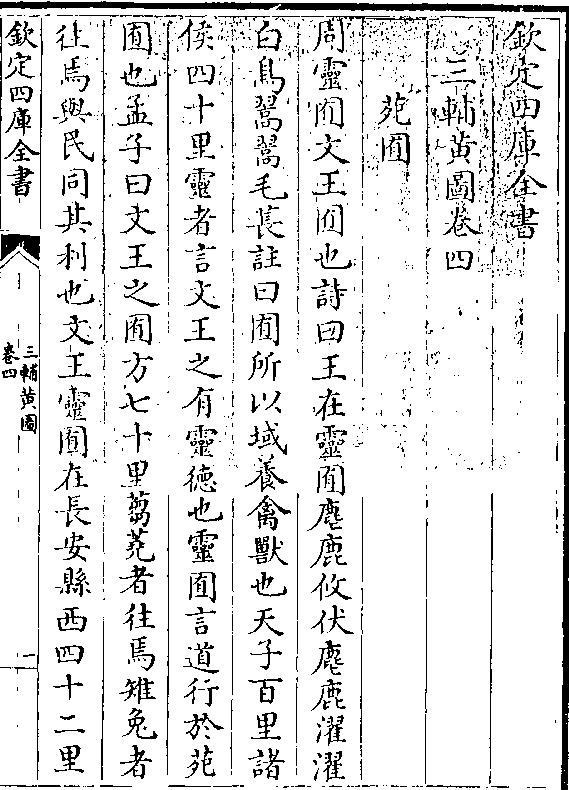 欽定四庫全書
三輔黃圖卷四
苑囿
周靈囿文王囿也詩曰王在靈囿麀鹿攸伏麀鹿濯濯
白鳥翯翯毛萇註曰囿所以域養禽獸也天子百里諸
侯四十里靈者言文王之有靈德也靈囿言道行於苑
囿也孟子曰文王之囿方七十里芻蕘者往焉雉兔者
往焉與民同其利也文王靈囿在長安縣西四十二里
欽定四庫全書
三輔黃圖
卷四
一